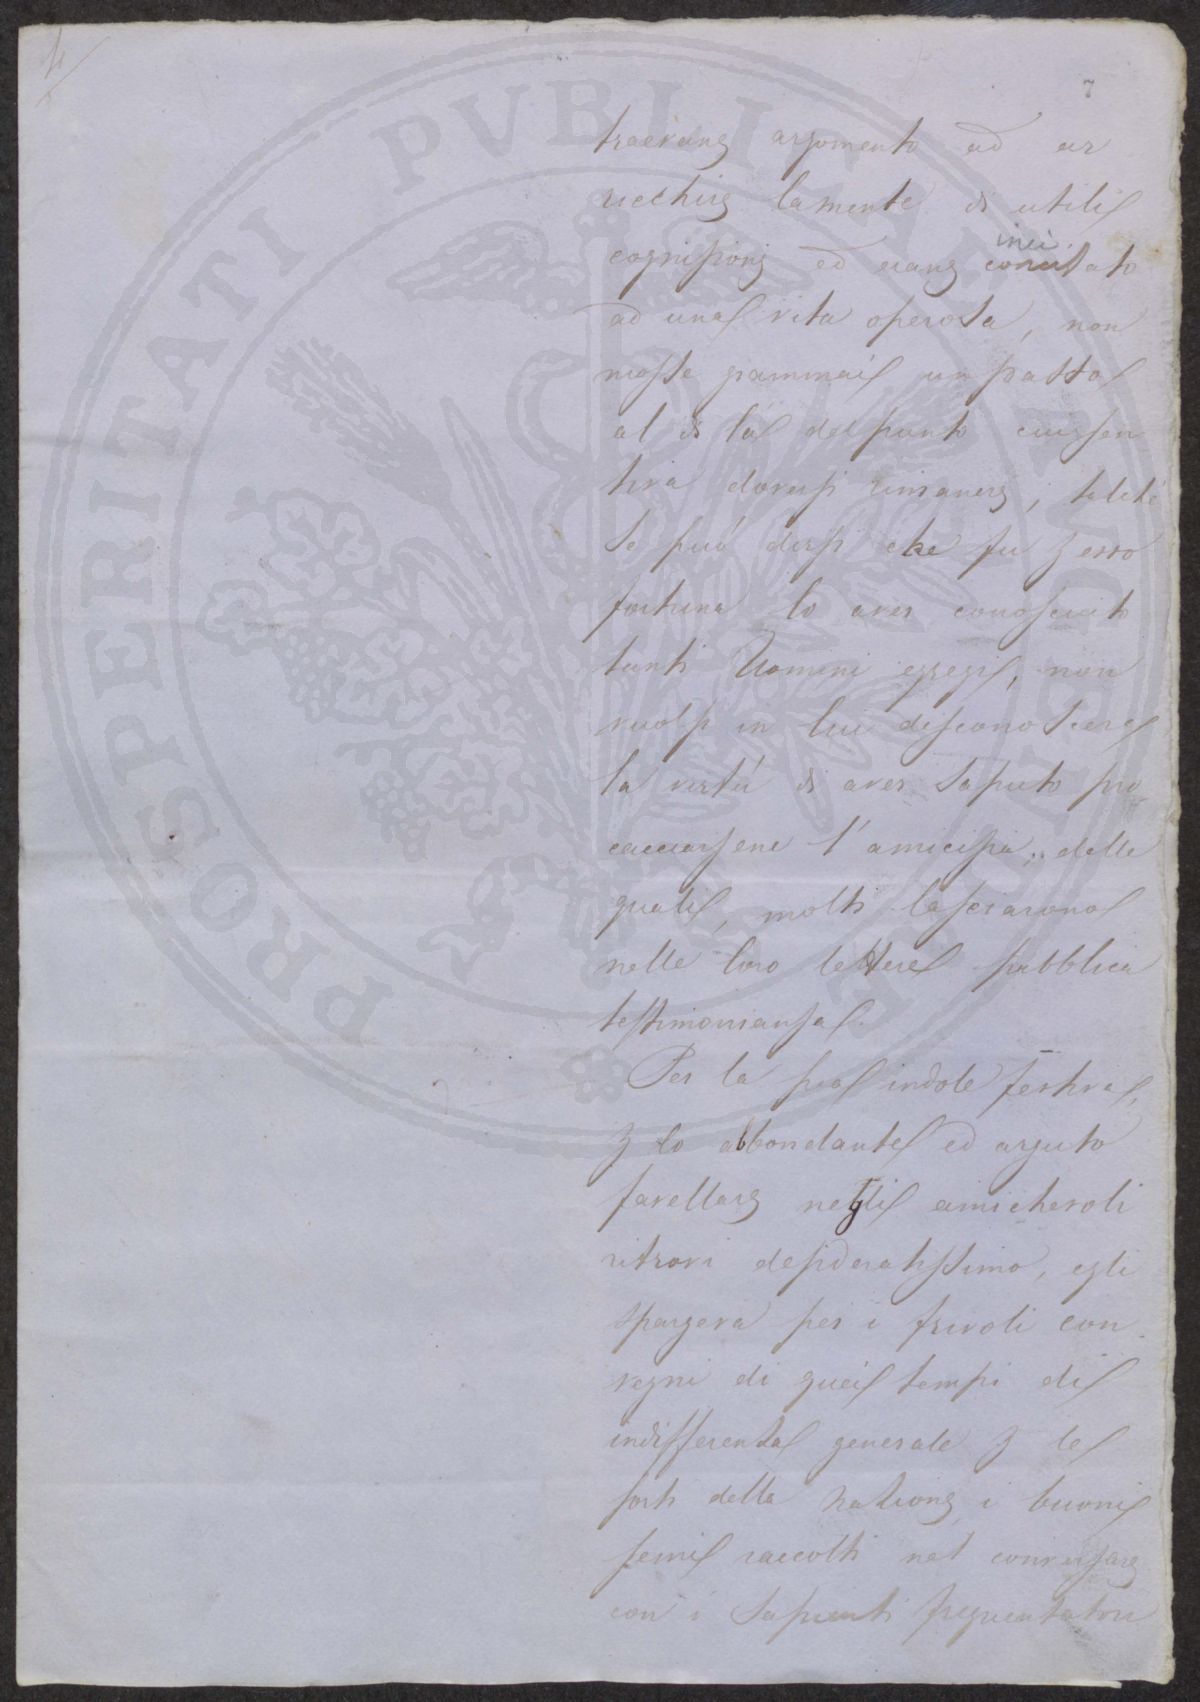 4/
7
PROSPERITATI PVBLICAE AVGENDAE
traevano argomento ad ar
ricchire la mente di utili
cognizioni ed erano inci
concitato
ad una vita operosa, non
mosse giammai un passo
al di là del punto cui sen
tiva doversi rimanere; talché
se può dirsi che fu per esso
fortuna lo aver conosciuto
tanti Uomini egregi, non
vuolsi in lui disconoscere
la virtù di aver saputo pro
cacciarsene l'amicizia; delle
quali, molti lasciarono
nelle loro lettere pubblica
testimonianza.
Per la sua indole festiva,
per lo abbondante ed arguto
favellare negli amichevoli
ritrovi desideratissimo, egli
spargeva per i frivoli con
vegni di quei tempi di
indifferenza generale per le
sorti della Nazione, i buoni
semi raccolti nel conversare
con i Sapienti frequentatori